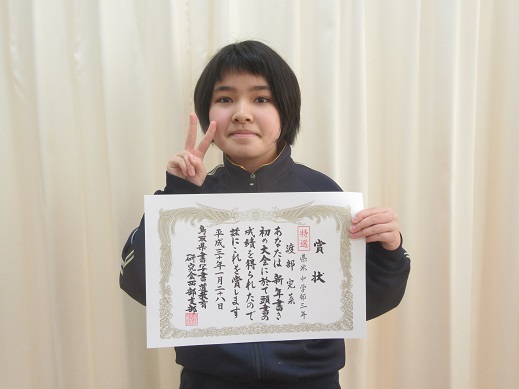 賞状
特選 中学部三年
渡部
あなたは新年書き
初め大会に於て頭書の
成績を得られたので
茲にこれを賞します
平成三十年一月二十八日
鳥取県書写書道教育
研究会西部支部